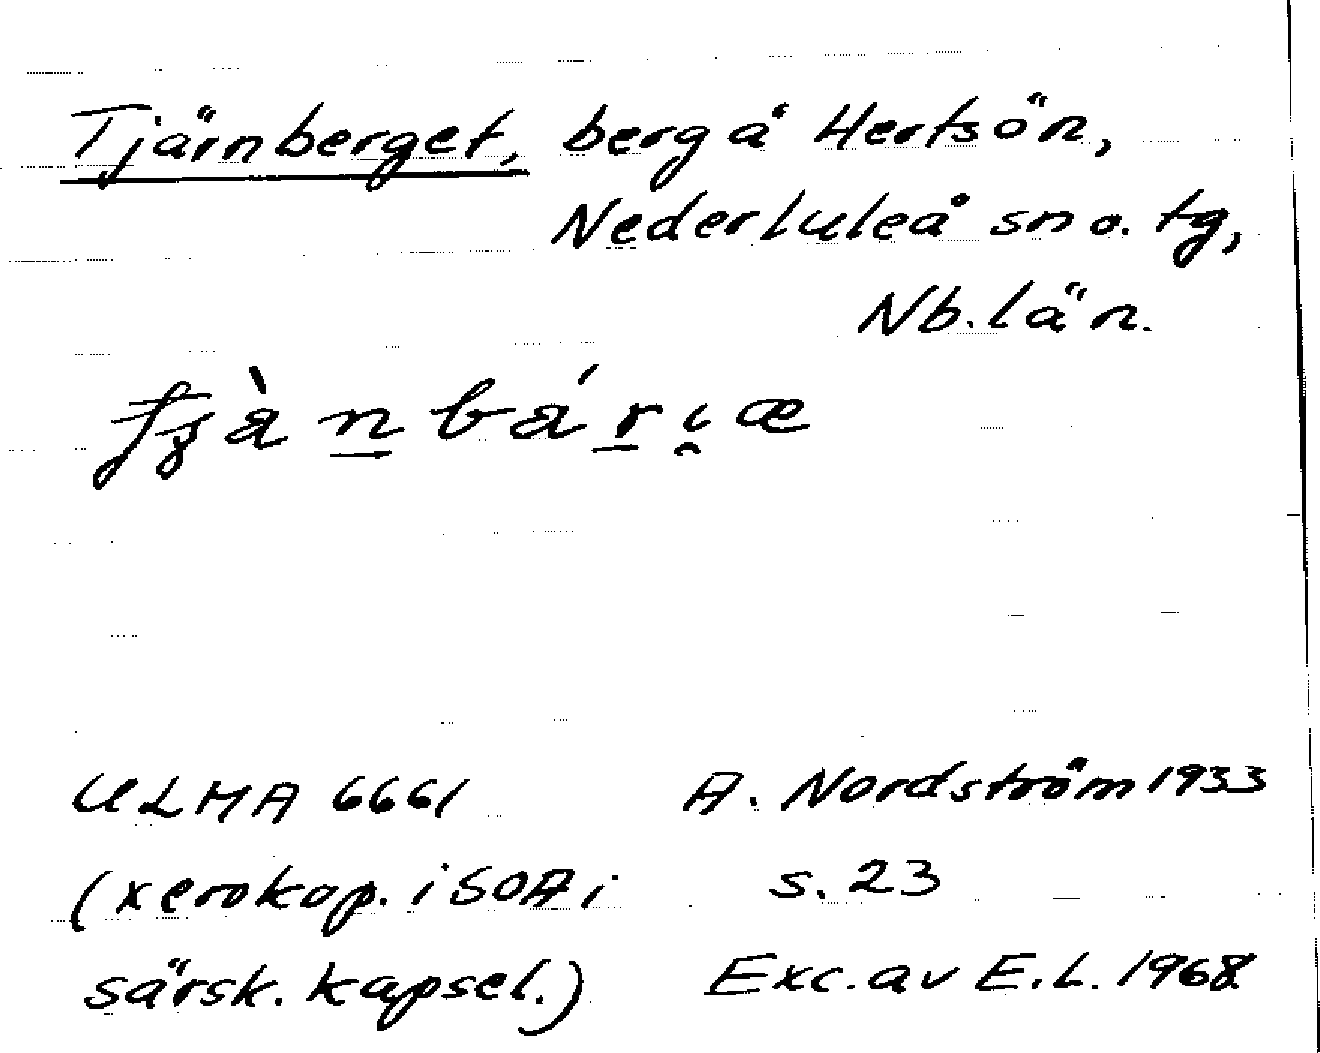 Tjärnberget, berg å Hertsön,
Nederluleå sn o. tg,
Nb. län.
ULMA 6661 A. Nordström 1933
(xerokop. i SOA i s. 23
särsk. kapsel.) Exc. av E.L. 1968